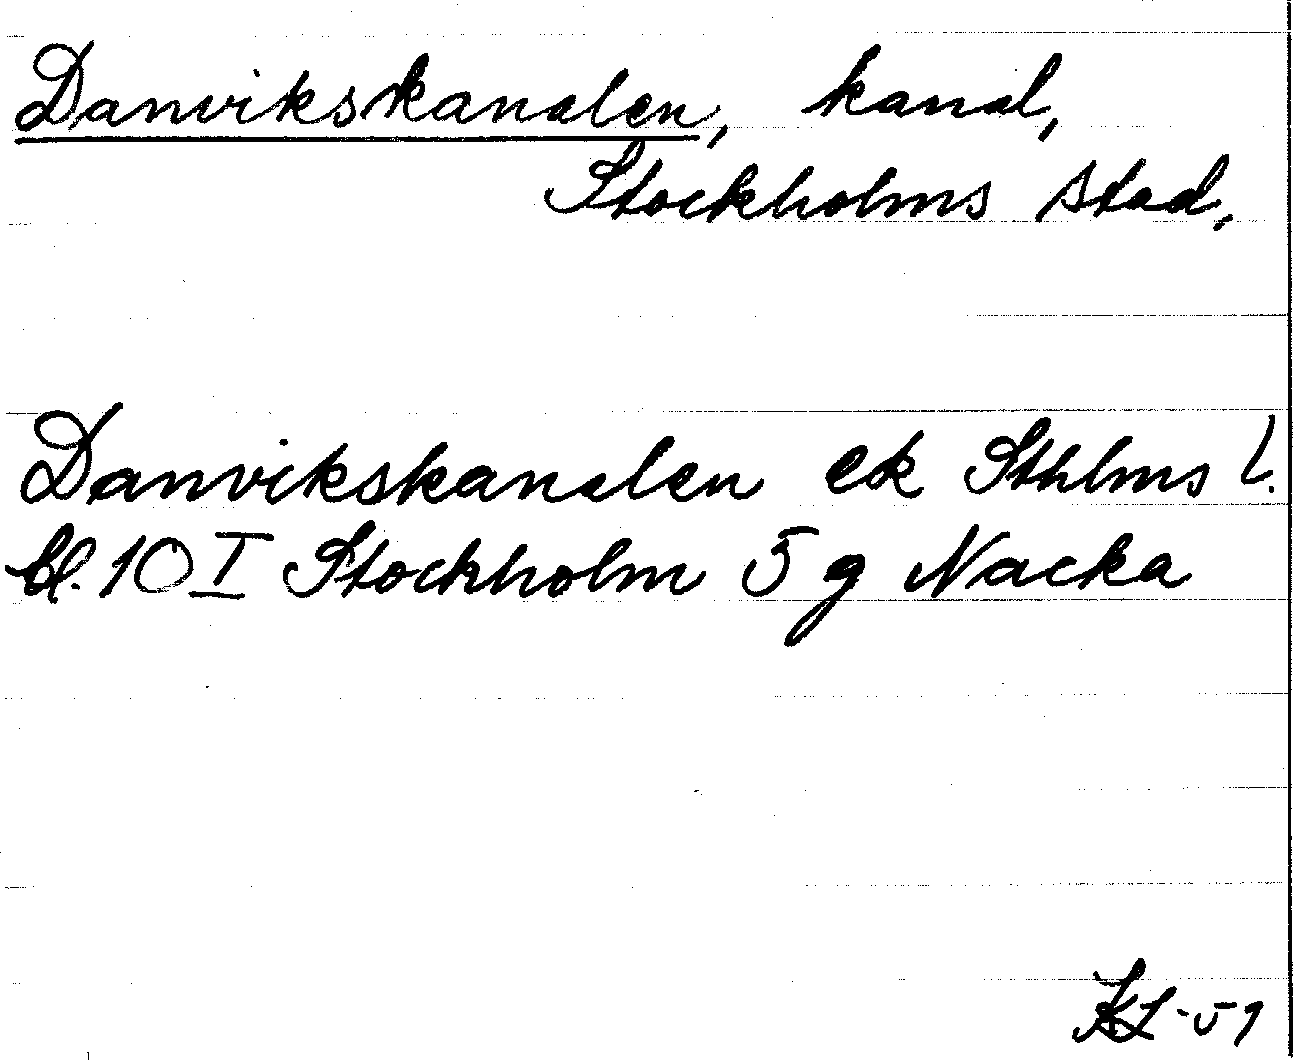 Danvikskanalen, kanal,
Stockholms stad,
Danvikskanalen ek Sthlms l.
bl. 10 I Stockholm 5 g Nacka
KL-51